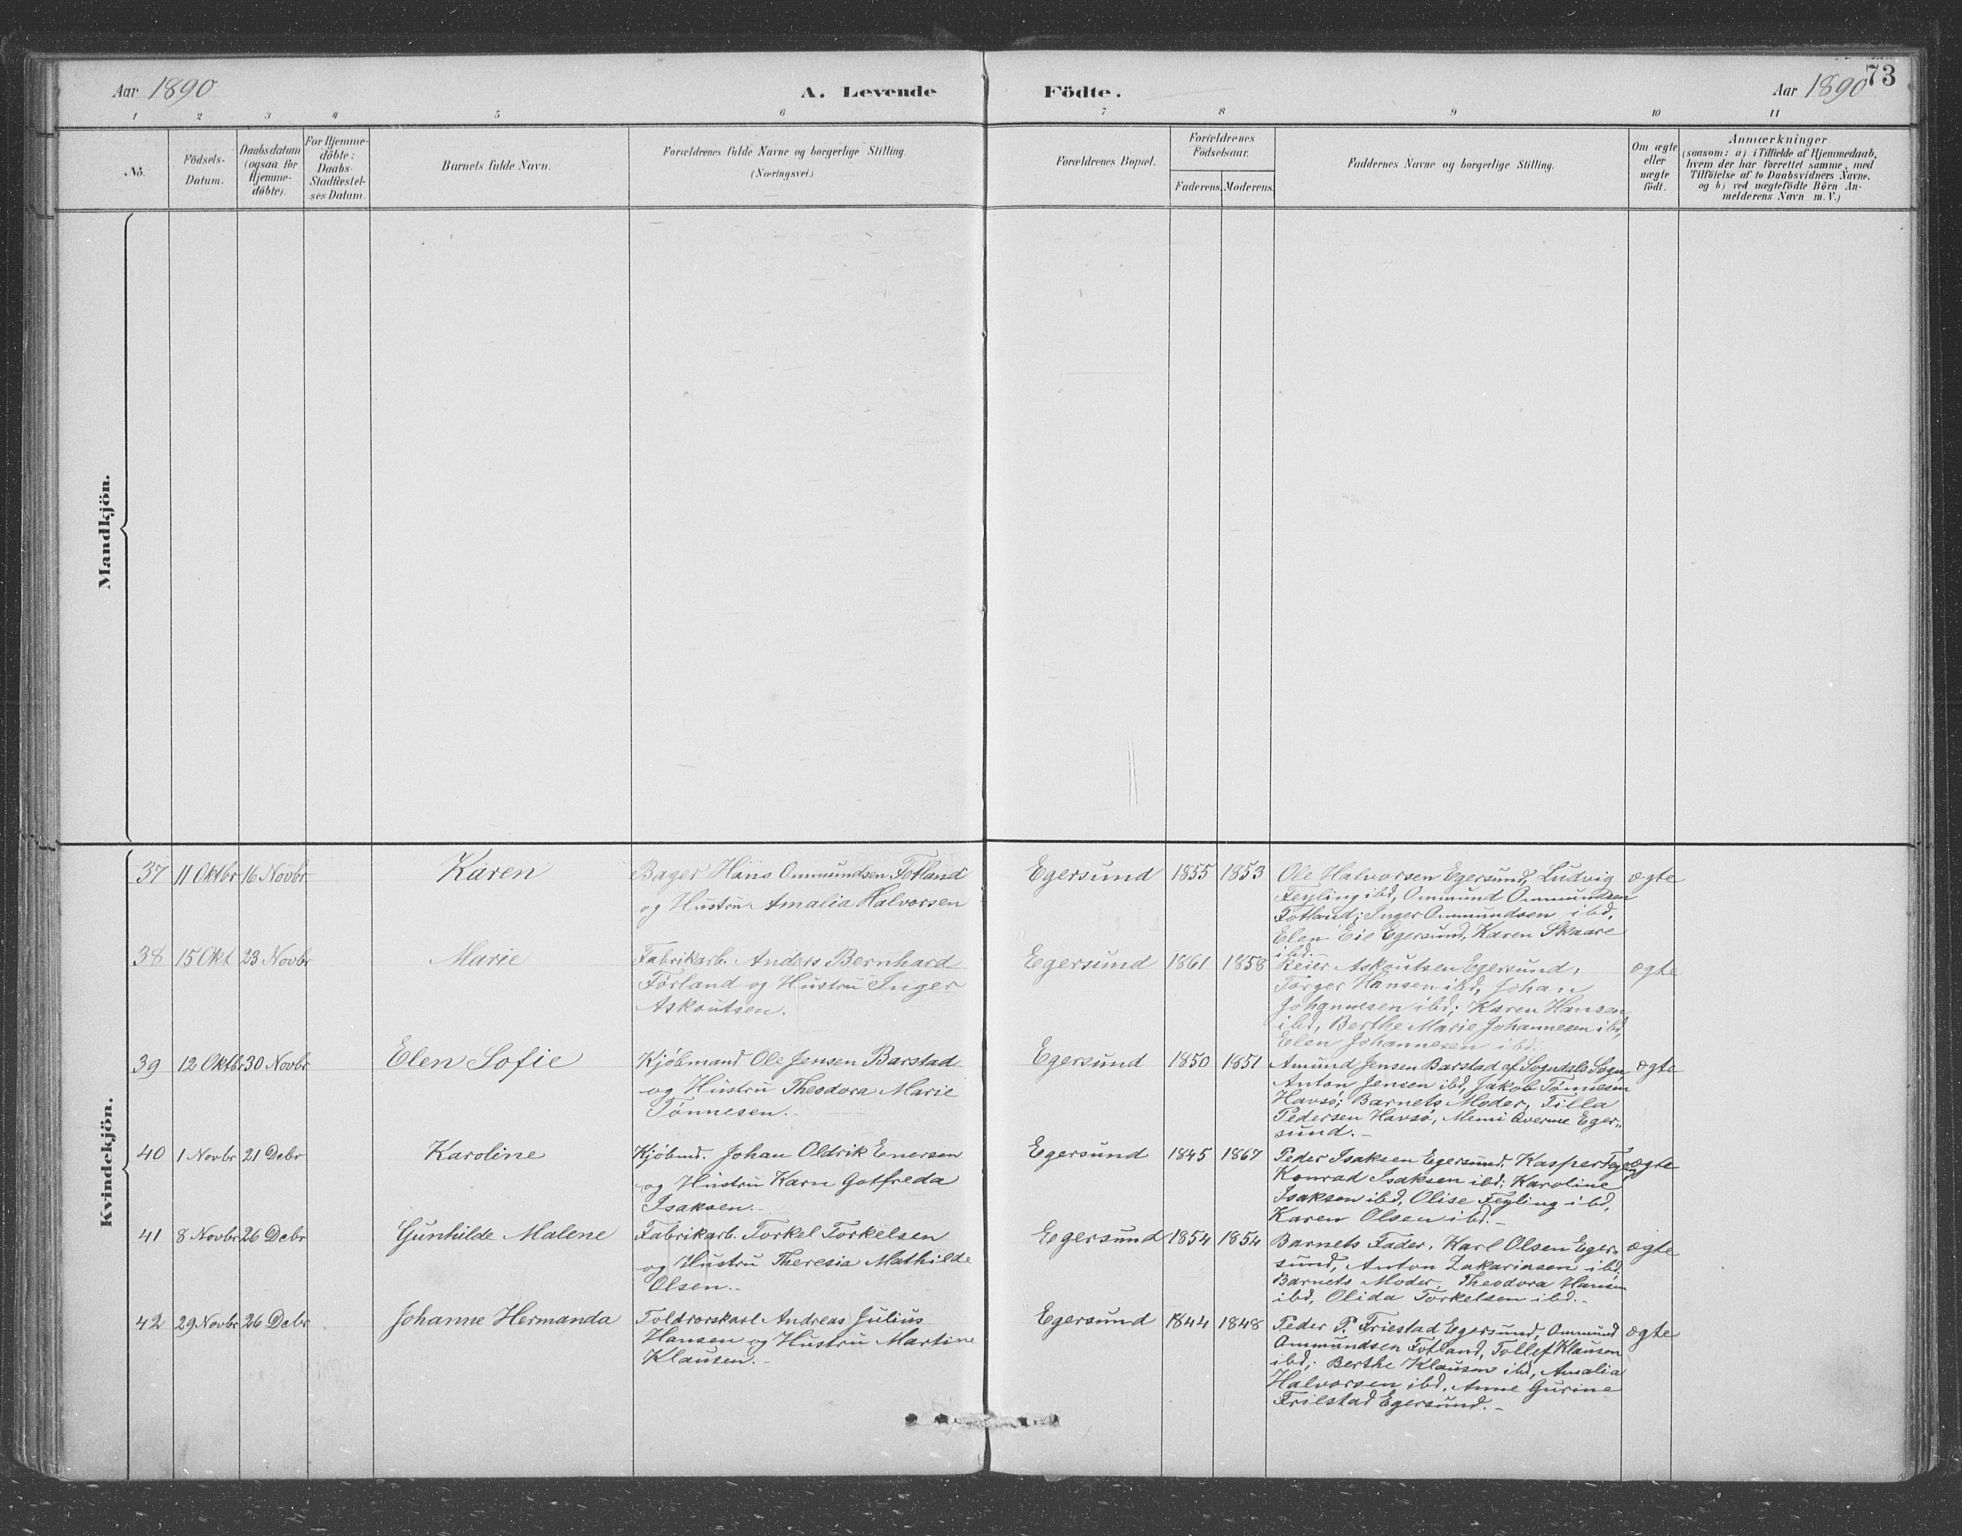 Aar 1890
A. Levende Födte.
Aar 1890
73
1 2 3 4 5 6 7 8 9 10 11
No.
Födsels-Datum.
Daabsdatum (ogsaa for Hjemme-döbte).
For Hjemme-döbte: Daabs-Stadfæstel-ses Datum.
Barnets fulde Navn.
Forældrenes fulde Navne og borgerlige Stilling.
(Næringsvei.)
Forældrenes Bopæl.
Forældrenes Födselsaar.
Faderens. Moderens.
Faddernes Navne og borgerlige Stilling.
Om ægte eller uægte födt.
Anmærkninger
(saasom: a) i Tilfælde af Hjemmedaab,
hvem der har forrettet samme, med
Tilföielse af to Daabsvidners Navne,
og b) ved uægtefödte Börn An-
melderens Navn m. V.)
Mandkjön.
Kvindekjön.
37 11 Oktbr 16 Novbr Karen
Bager Hans Ommundsen Fotland
og Hustru Amalia Halvorsen
Egersund 1855 1853
Ole Halvorsen Egersund, Ludvig
Feyling ibd, Ommund Ommundsen
Fotland; Inger Ommundsen ibd,
Elen Eie Egersund, Karen Skaare
ibd.
ægte
38 15 Okt 23 Novbr Marie
Fabrikarb. Anders Bernhard
Förland og Hustru Inger
Askoutsen.
Egersund 1861 1858
Reier Askoutsen Egersund,
Torger Hansen ibd, Johan
Johannesen ibd; Karen Hansen
ibd, Berthe Marie Johannesen ibd,
Elen Johannesen ibd.
ægte
39 12 Oktbr 30 Novbr Elen Sofie
Kjöbmand Ole Jensen Barstad
og Hustru Theodora Marie
Tönnesen.
Egersund 1850 1851
Amund Jensen Barstad af Sogndals Sogn,
Anton Jensen ibd, Jakob Tönnesen
Havsö; Barnets Moder, Tilla
Pedersen Havsö, Memi Everme Eger-
sund.
ægte
40 1 Novbr 21 Debr Karoline
Kjöbmd. Johan Oldrik Enersen
og Hustru Karn Gotfreda
Isaksen.
Egersund 1845 1867
Peder Isaksen Egersund, Kasper
Konrad Isaksen ibd; Karoline
Isaksen ibd, Olise Feyling ibd,
Karen Olsen ibd.
ægte
41 8 Novbr 26 Debr Gunhilde Malene
Fabrikarb. Torkel Torkelsen
og Hustru Theresia Mathilde
Olsen.
Egersund 1854 1854
Barnets Fader, Karl Olsen Eger-
sund, Anton Zakariasen ibd.
Barnets Moder, Theodora Hansen
ibd, Olida Torkelsen ibd.
ægte
42 29 Novbr 26 Debr Johanne Hermanda
Toldrorskarl Andreas Julius
Hansen og Hustru Martine
Klausen.
Egersund 1844 1848
Peder P. Friestad Egersund, Ommund
Ommundsen Fotland, Tollef Klausen
ibd; Berthe Klausen ibd, Amalia
Halvorsen ibd, Anne Gurine
Friestad Egersund.
ægte